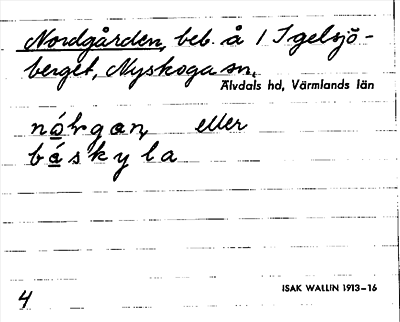 Nordgården, beb. å 1 Igelsjö-
berget, Nyskoga sn,
Älvdals hd, Värmlands län
eller
báskyla
ISAK WALLIN 1913–16
4